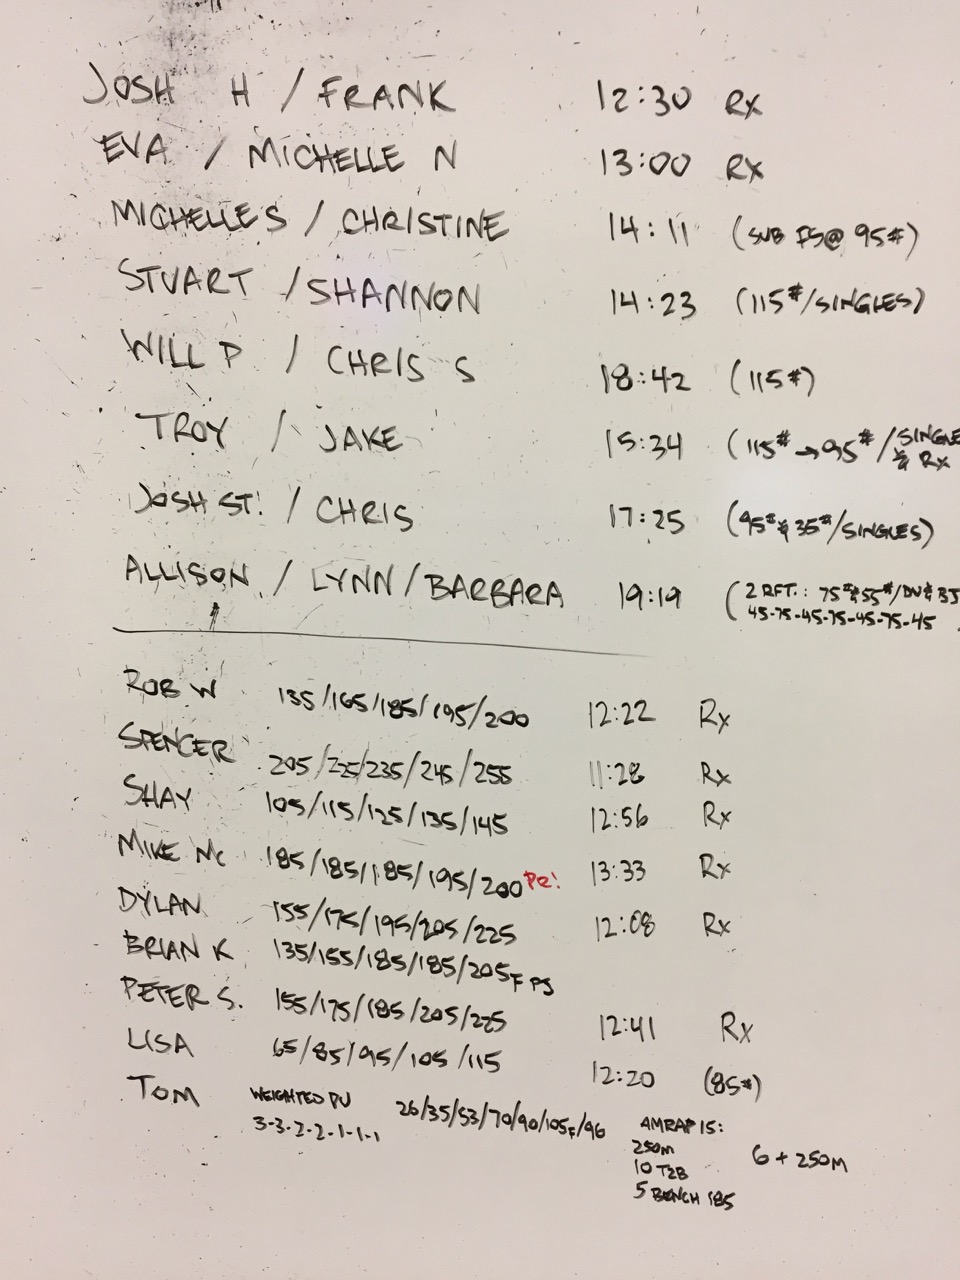 JOSH H / FRANK 12:30 Rx
EVA / MICHELLE N 13:00 Rx
MICHELLE S / CHRISTINE 14:11 (SUB FS@ 95#)
STUART / SHANNON 14:23 (115#/SINGLES)
WILL P / CHRIS S 18:42 (115#)
TROY / JAKE 15:34 (115#→95#/SINGLE
& Rx
JOSH ST. / CHRIS 17:25 (95#&35#/SINGLES)
ALLISON / LYNN / BARBARA 19:19 (2 RFT.: 75#&55#/DU&35
45-75-45-75-45-75-45
ROB W 135/165/185/195/200 12:22 Rx
SPENCER 205/225/235/245/255 11:28 Rx
SHAY 105/115/125/135/145 12:56 Rx
MIKE Mc 185/185/185/195/200 PR! 13:33 Rx
DYLAN 155/175/195/205/225 12:08 Rx
BRIAN K 135/155/185/185/205F PS
PETER S. 155/175/185/205/225 12:41 Rx
LISA 65/85/95/105/115 12:20 (85#)
TOM WEIGHTED PU 26/35/53/70/90/105F/96 AMRAP 15:
3-3-2-2-1-1-1 250m
10 T2B 6 + 250M
5 BENCH 185